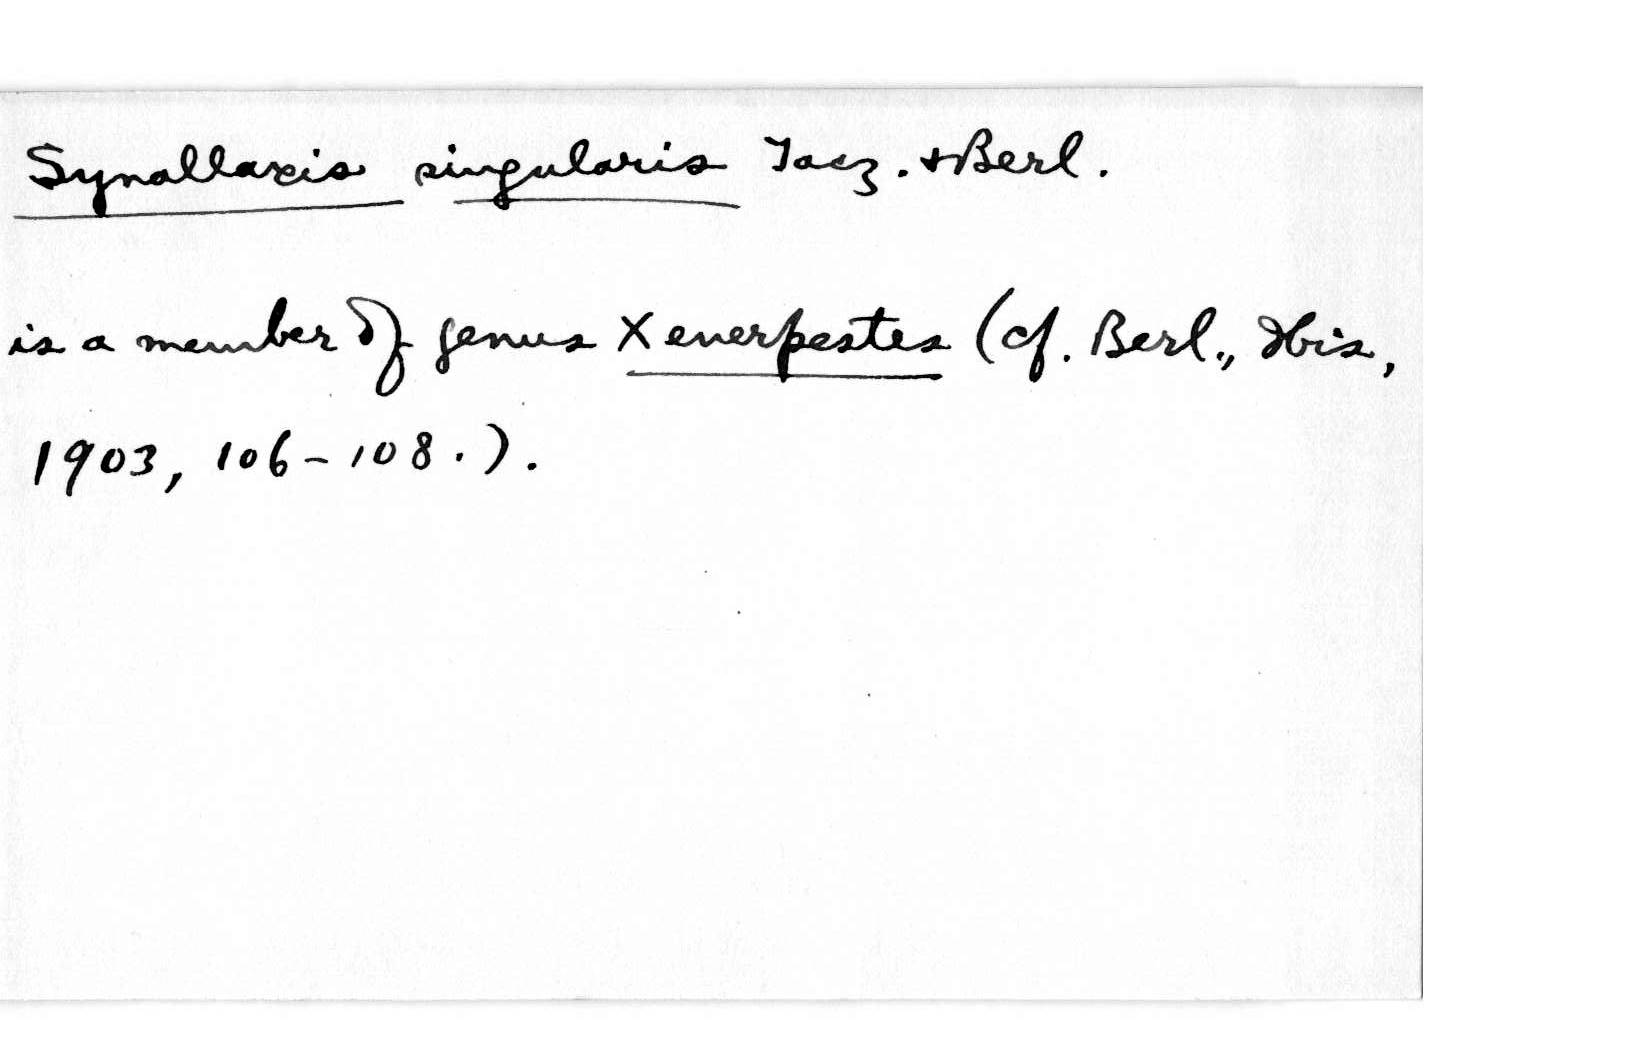 Synallaxis singularis Tacz. + Berl.
is a member of genus Xenerpestes (cf. Berl., Ibis,
1903, 106-108.).